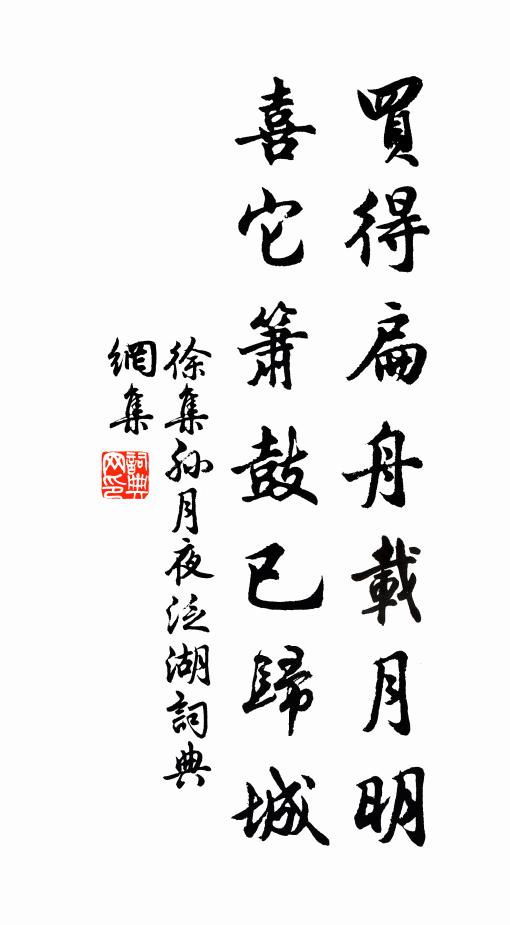 買得扁舟載月明
喜它簫鼓已歸城
徐集孙月夜泛湖詞典
網集
詞典
网印